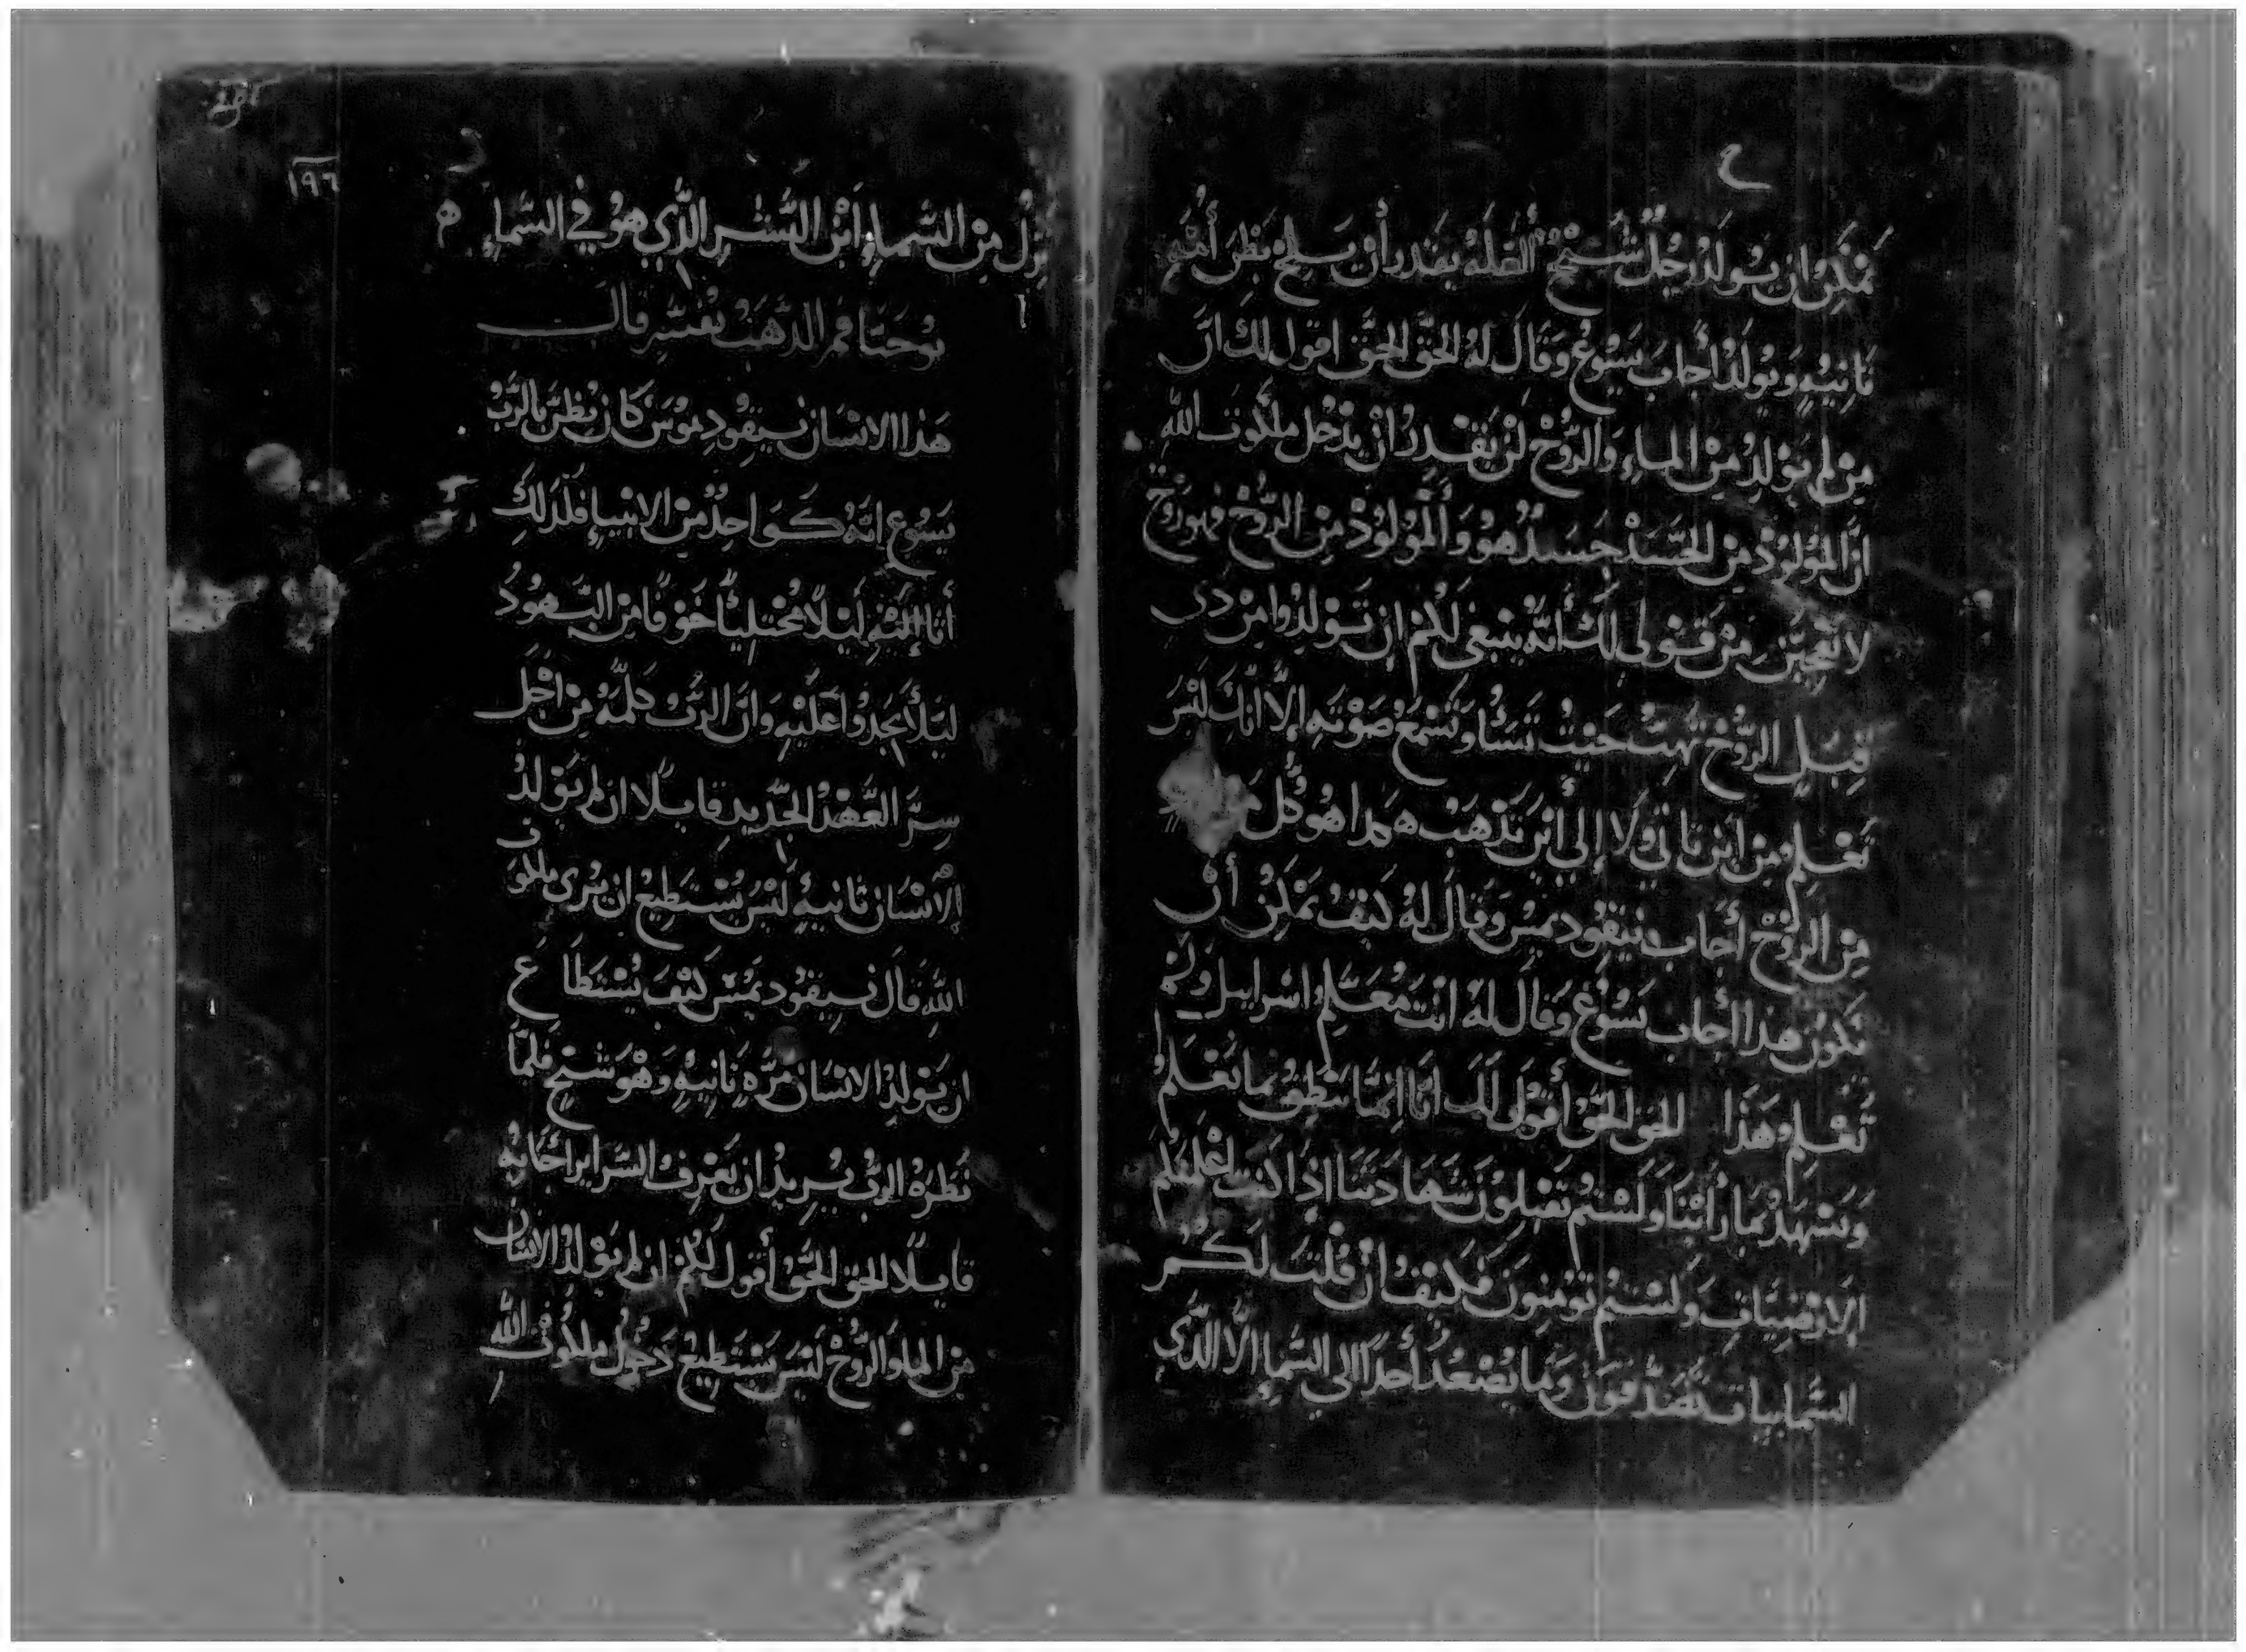 يمكن ان يولد رجل شيخ ألعله يقدر أن يلج بطن أمه
ثانيه ويولد أجاب يسوع وقال له الحق الحق اقول لك ان
من لم يولد من الماء والروح لن يقدر ان يدخل ملكوت الله
ان المولود من الجسد جسد هو والمولود من الروح فهو روح
لا تعجبن من قولي لك أنه ينبغي لكم ان تولدوا من ذي
قبل الروح تهب حيث تشا وتسمع صوته إلا انك ليس
تعلم من اين تاتي ولا إلي اين تذهب هكذا هو كل
من الروح أجاب نيقوديمس وقال له كيف يمكن أن
تكون هذا أجاب يسوع وقال له انت معلم اسراييل ولم
تعلم هذا الحق الحق أقول لك انا إنما ننطق بما نعلم
ونشهد بما رأينا ولستم تقبلون شهادتنا إذا كنت اعلمتكم
الارضيات ولستم تومنون فكيف ان قلت لكم
السماييات تصدقون وما يصعد أحدا الي السما الا الذي
١٩٦
نزل من السماء ابن البشر الذي هو في السماء
يوحنا فم الذهب يفسر قال
هذا الانسان نيقوديموس كان يظن بالرب
يسوع انه كواحد من الانبياء فلذلك
أتا إليه ليلا مختليا خوفا من اليهود
ليلا يجدوا عليه وان الرب كلمه من اجل
سر العهد الجديد قايلا ان لم يولد
الانسان ثانيه ليس يستطيع ان يرى ملكوت
الله قال نيقوديمس كيف يستطاع
ان يولد الانسان مره ثانيه وهو شيخ فلما
نظره الرب يريد ان يعرف السراير أجابه
قايلا الحق الحق أقول لكم ان لم يولد الانسان
من الما والروح ليس يستطيع دخول ملكوت الله